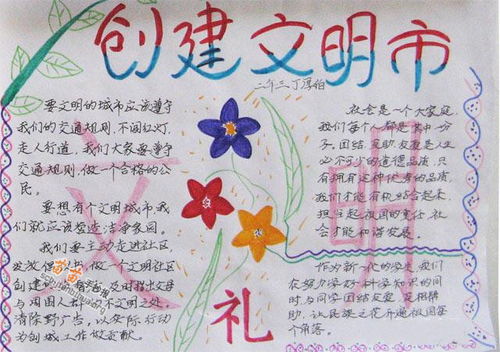 创建文明市
二年三 丁
要文明的城市应该遵守
我们的交通规则,不闯红灯,
走人行道,我们大家要遵守
交通规则,做一个合格的公
民。
要想有个文明城市,我
们就应该营造洁净家园。
我们要主动走进社区
做一个文明社区
创建 及时指出父母
与周围人群的不文明之处。
清除野广告,以实际行动
为创城工作做贡献。
文
明
礼
社会是一个大家庭,
我们每个人都是其中一分
子,团结、互助、友爱是人生
必不可少的道德品质,只
有拥有这种优秀的品质,
我们才能有机结合起来,
担当起祖国的重任,社
会才能和谐发展。
作为新一代的学生,我们
在努力学好科学知识的同
时,与同学团结友爱,互相帮
助,让民族之花开遍祖国每
个角落。
苗苗